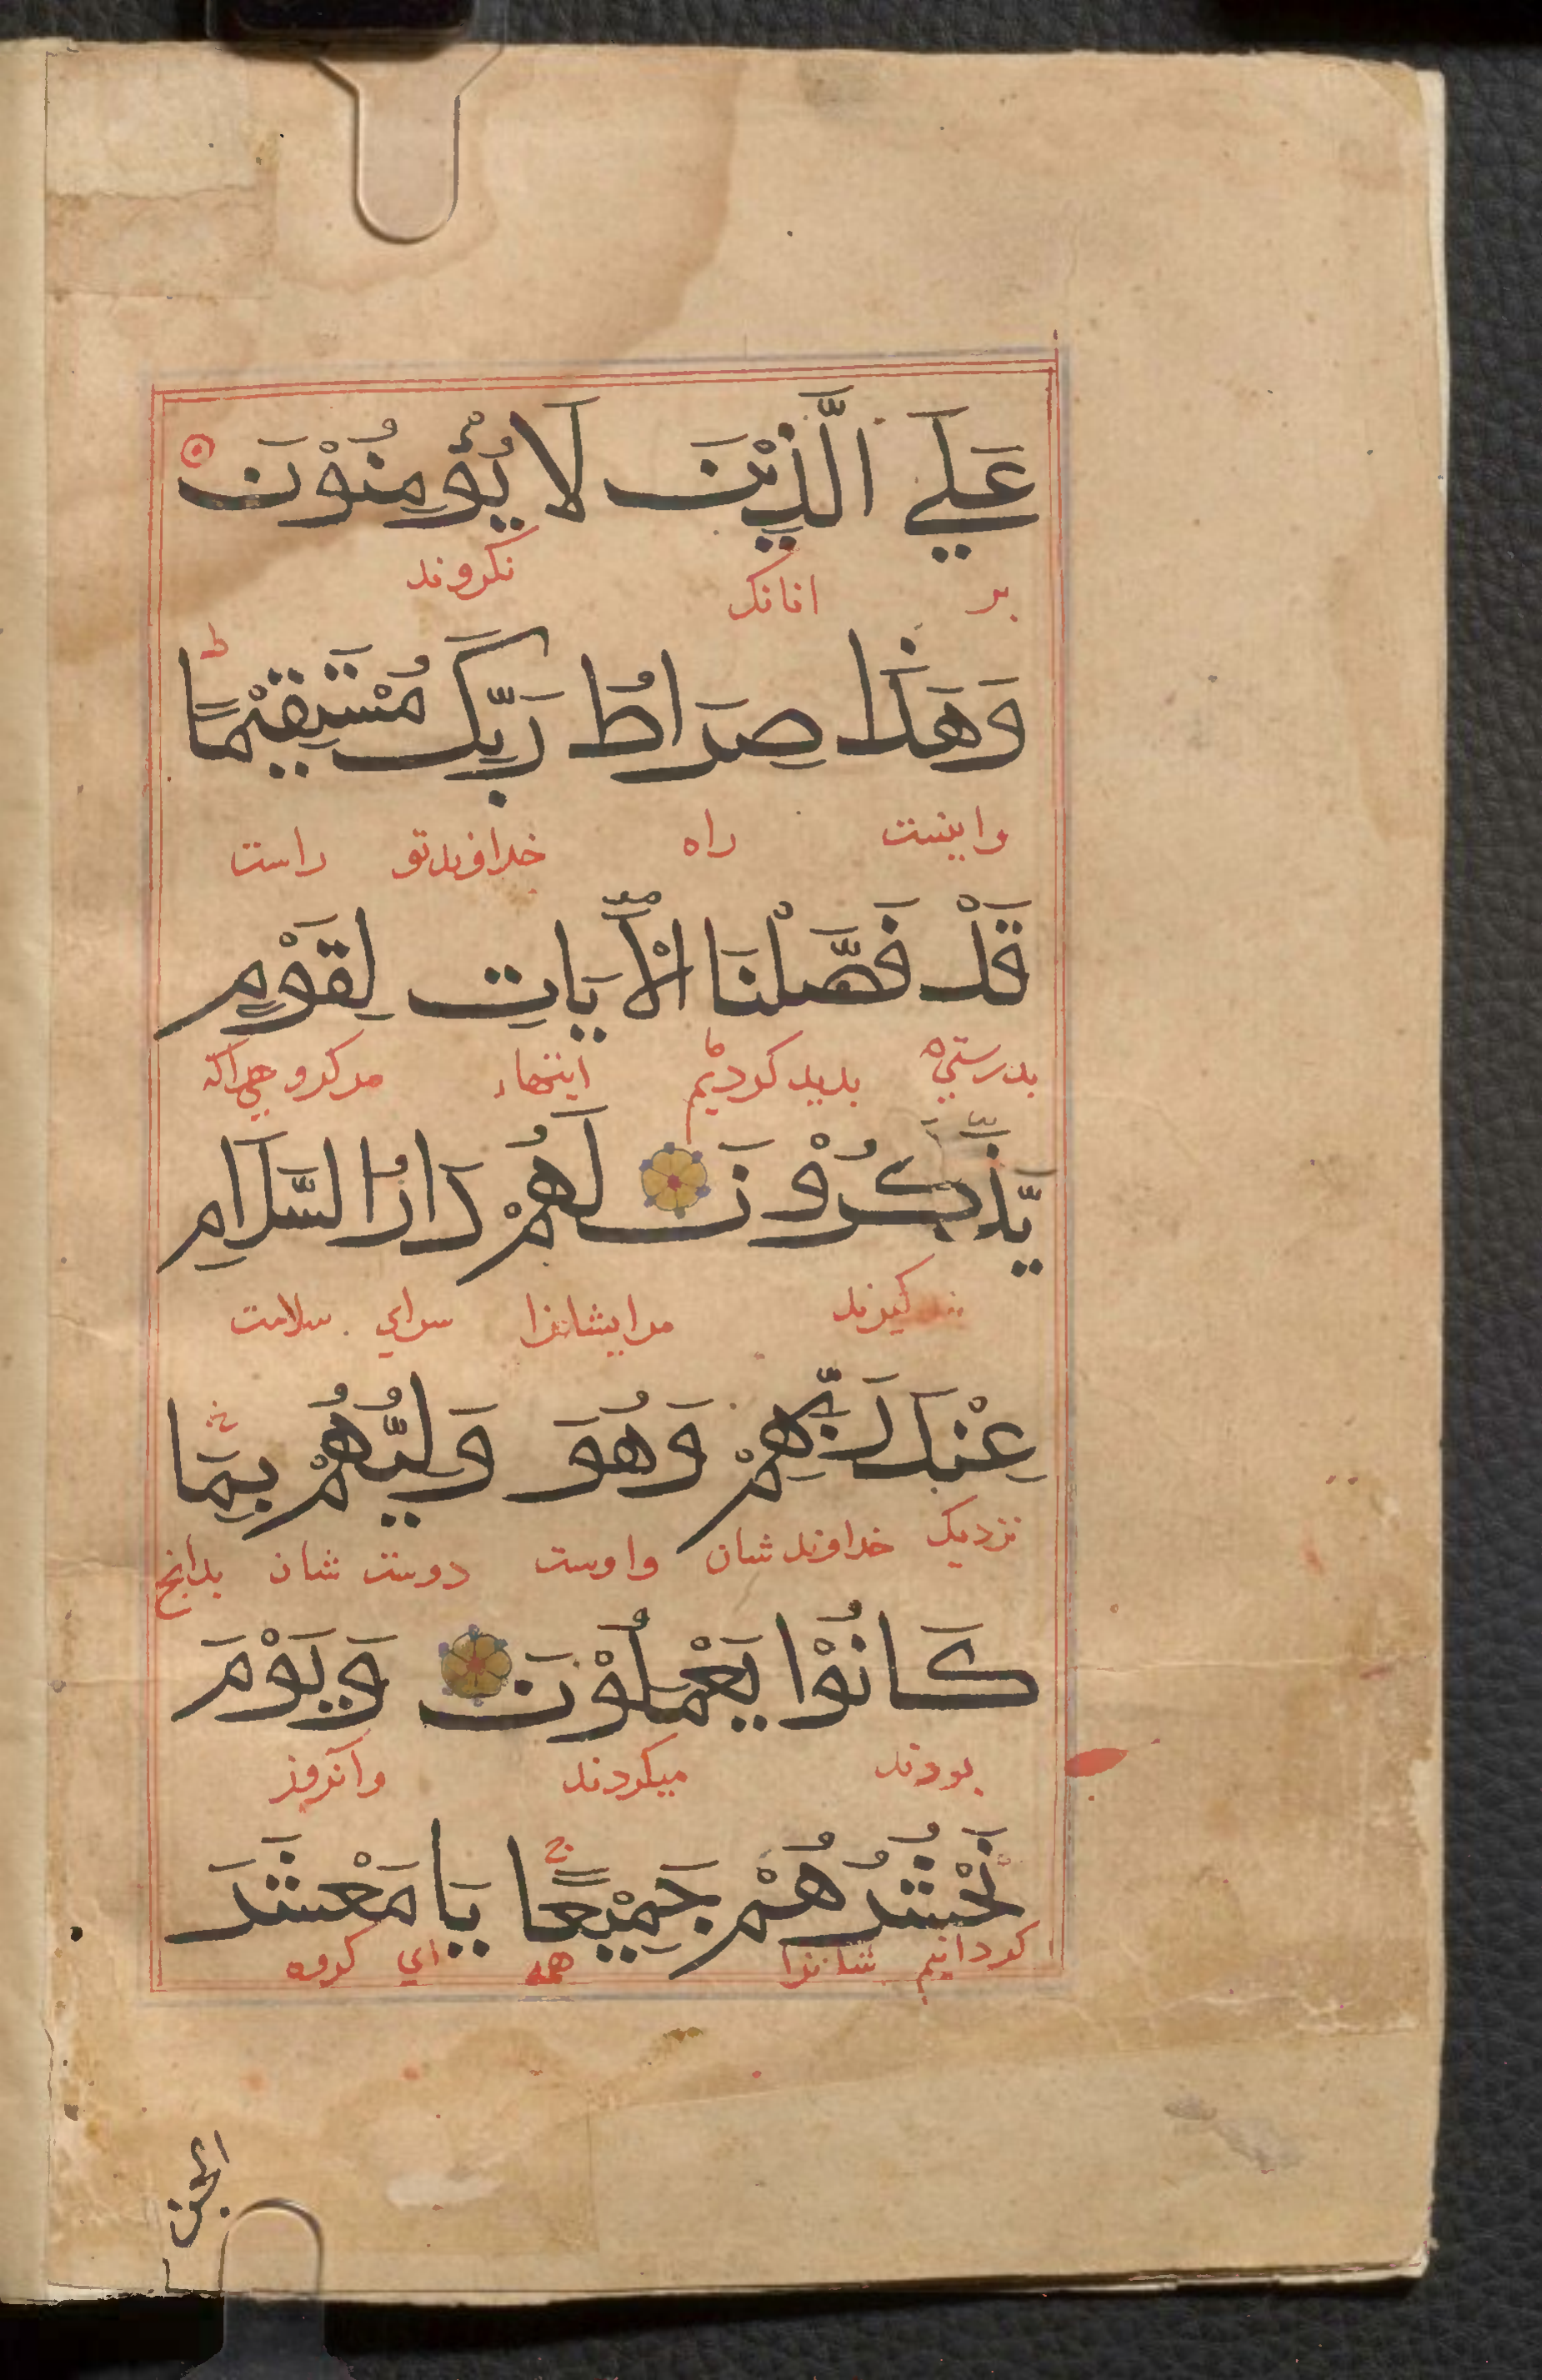 عَلَي الَّذِيْنَ لَا يُؤْمِنُوْنَ
بر انانک نکروند
وَهَذَا صِرَاطُ رَبِّكَ مُسْتَقِيْمًا ط
واینست راه خداوندتو راست
قَدْ فَصَّلْنَا الْآيَاتِ لِقَوْمٍ
بدرستي بدید کردیم ایتهاء مرکروهي راکه
يَّذَّكَّرُوْنَ لَهُمْ دَارُ السَّلَامِ
کیرند مرایشانرا سراي سلامت
عِنْدَ رَبِّهِمْ وَهُوَ وَلِيُّهُمْ بِمَا
نزدیک خداوند شان واوست دوست شان بدانج
كَانُوْا يَعْمَلُوْنَ وَيَوْمَ
بودند میکردند وآنروز
نَحْشُرُهُمْ جَمِيْعًا ج يَا مَعْشَرَ
کردانیم شانرا همه اي کروه
الجن